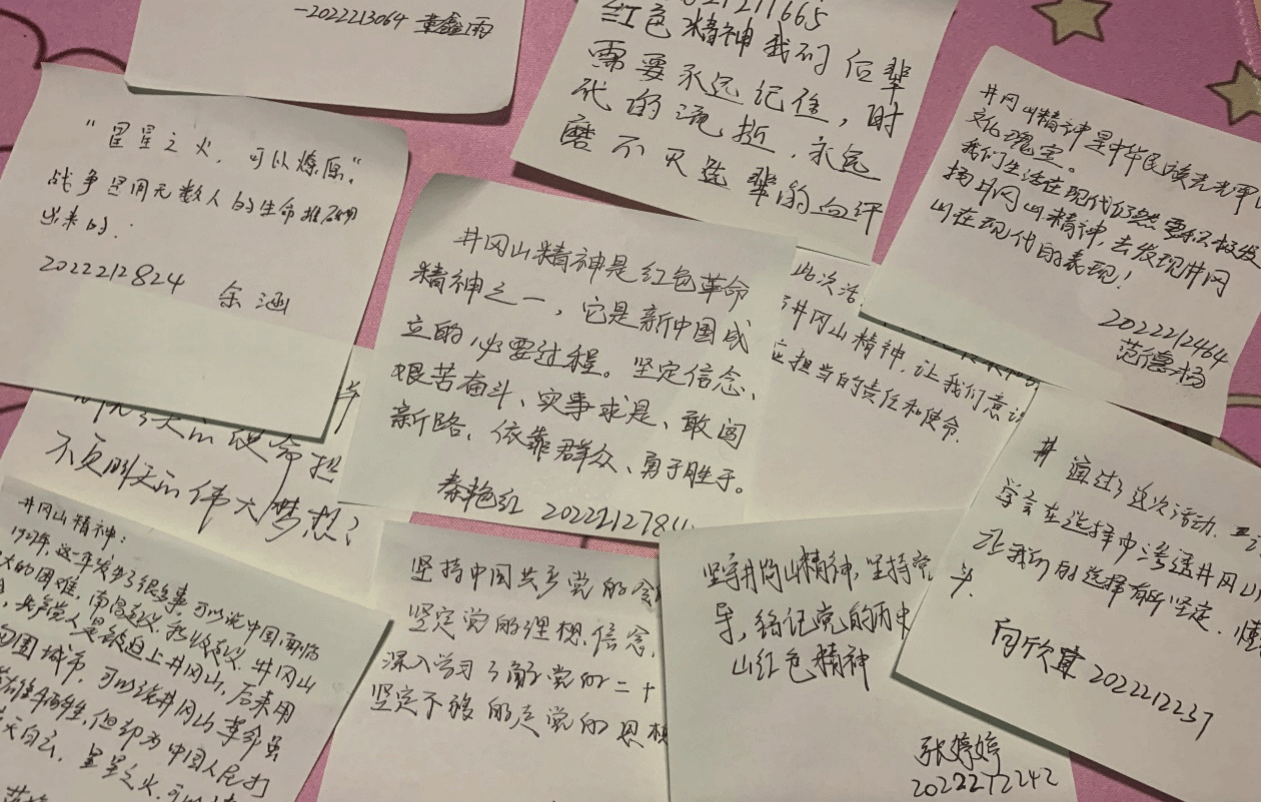 -2022213064 章鑫雨
红色精神我们后辈
需要永远记住，时
代的流逝，永远
磨不灭先辈的血汗
井冈山精神是中华民族光
文化瑰宝。
我们生活在现代仍然要积极发
扬井冈山精神，去发现井冈
山在现代的表现！
2022212464
范德杨
"星星之火，可以燎原"。
战争是用无数人的生命堆砌
出来的.
2022212824 余涵
井冈山精神是红色革命
精神之一，它是新中国成
立的必要过程。坚定信念、
艰苦奋斗、实事求是、敢闯
新路、依靠群众、勇于胜利。
秦艳红 202221278
此次活
井冈山精神，让我们意识
应担当的责任和使命.
的使命担
不负明天的伟大梦想！
井冈山精神：
1927年，这一年发生了很多事，可以说中国面临
大的困难，南昌起义、秋收起义、井冈山
共产党人是被迫上井冈山，后来用
包围城市，可以说井冈山革命虽
牺牲，但却为中国人民打
天白云，星星之火，可以
坚持中国共产党的
坚定党的理想信念，
深入学习了解党的二十
坚定不移的走党的思想
坚守井冈山精神，坚持党
导，铭记党的历史
山红色精神
张婷婷
2022212242
通过了这次活动，
学会在选择中渗透井冈山
让我们的选择有所坚定、懂
头.
向欣 2022212237